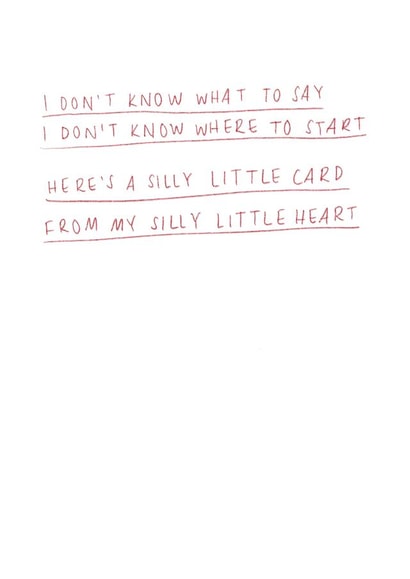 I DON'T KNOW WHAT TO SAY
I DON'T KNOW WHERE TO START
HERE'S A SILLY LITTLE CARD
FROM MY SILLY LITTLE HEART